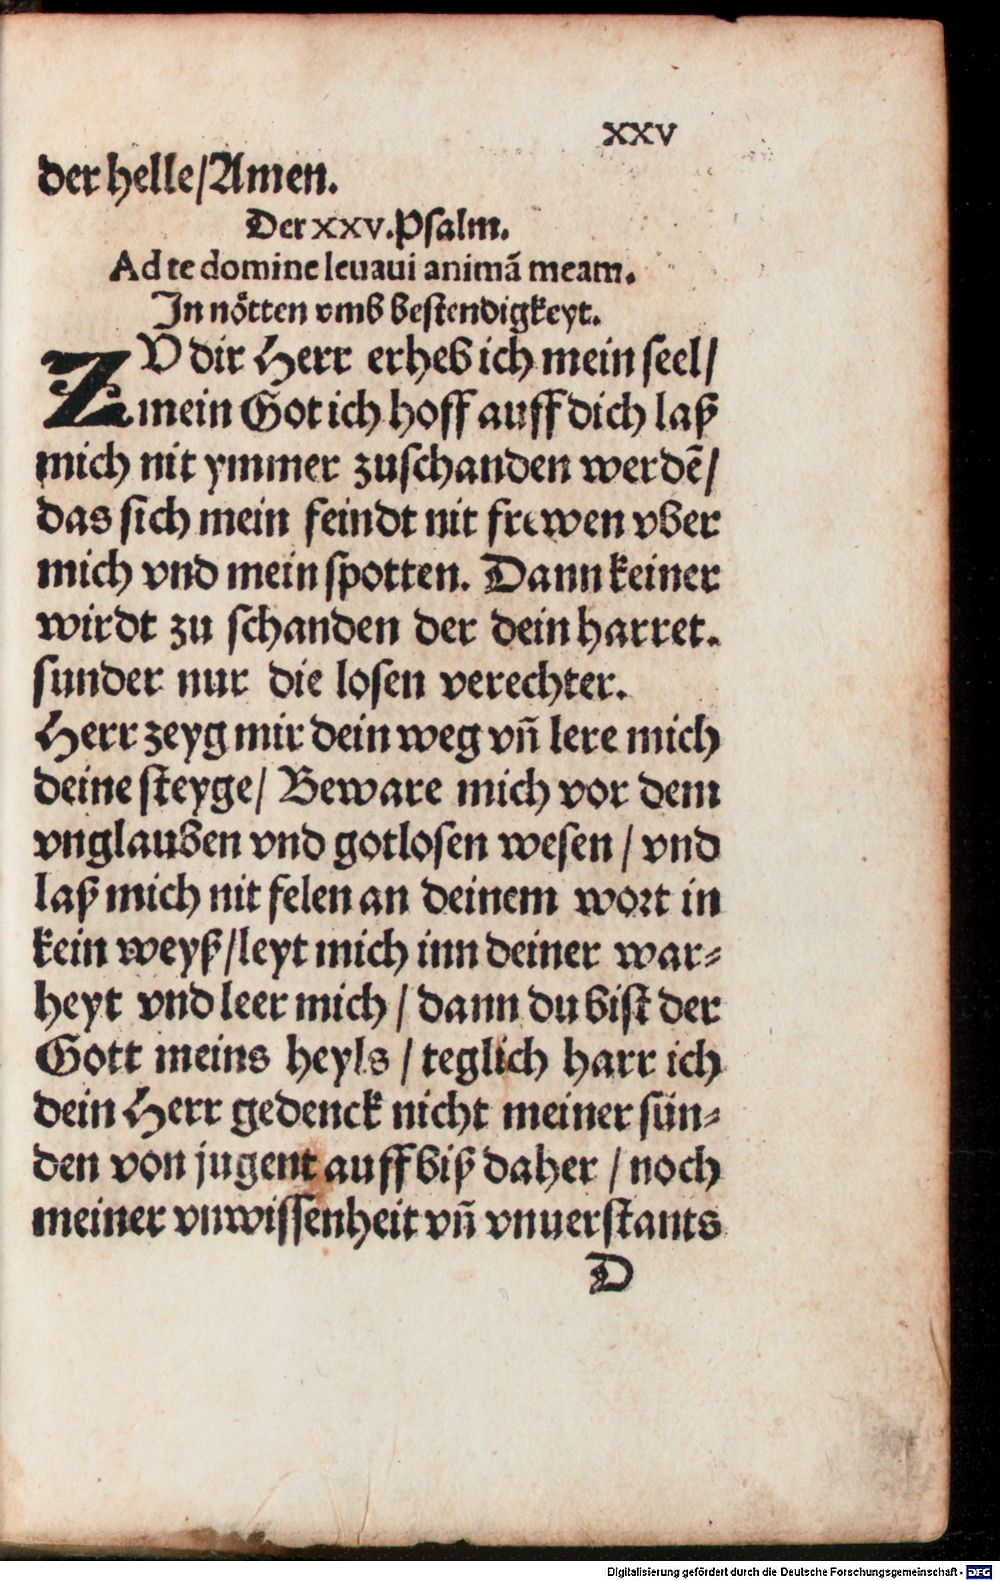 xxv
der helle/Amen.
Der xxv. Psalm.
Ad te domine leuaui animã meam.
In nötten vmb bestendigkeyt.
ZV dir Herr erheb ich mein seel/
mein Got ich hoff auff dich laß
mich nit ymmer zuschanden werdẽ/
das sich mein feindt nit frewen vber
mich vnd mein spotten. Dann keiner
wirdt zu schanden der dein harret.
sunder nur die losen verechter.
Herr zeyg mir dein weg vñ lere mich
deine steyge/ Beware mich vor dem
vnglauben vnd gotlosen wesen / vnd
laß mich nit felen an deinem wort in
kein weyß/leyt mich inn deiner war-
heyt vnd leer mich / dann du bist der
Gott meins heyls / teglich harr ich
dein Herr gedenck nicht meiner sün-
den von jugent auff biß daher / noch
meiner vnwissenheit vñ vnuerstants
D
Digitalisierung gefördert durch die Deutsche Forschungsgemeinschaft - DFG